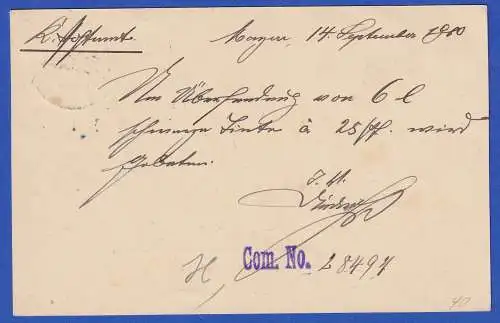 K. Postamt. Mayen, 14. September 1900
Um Übersendung von 6 l
schwarze Tinte à 25 Pf. wird
gebeten.
Com. No. 28494
40